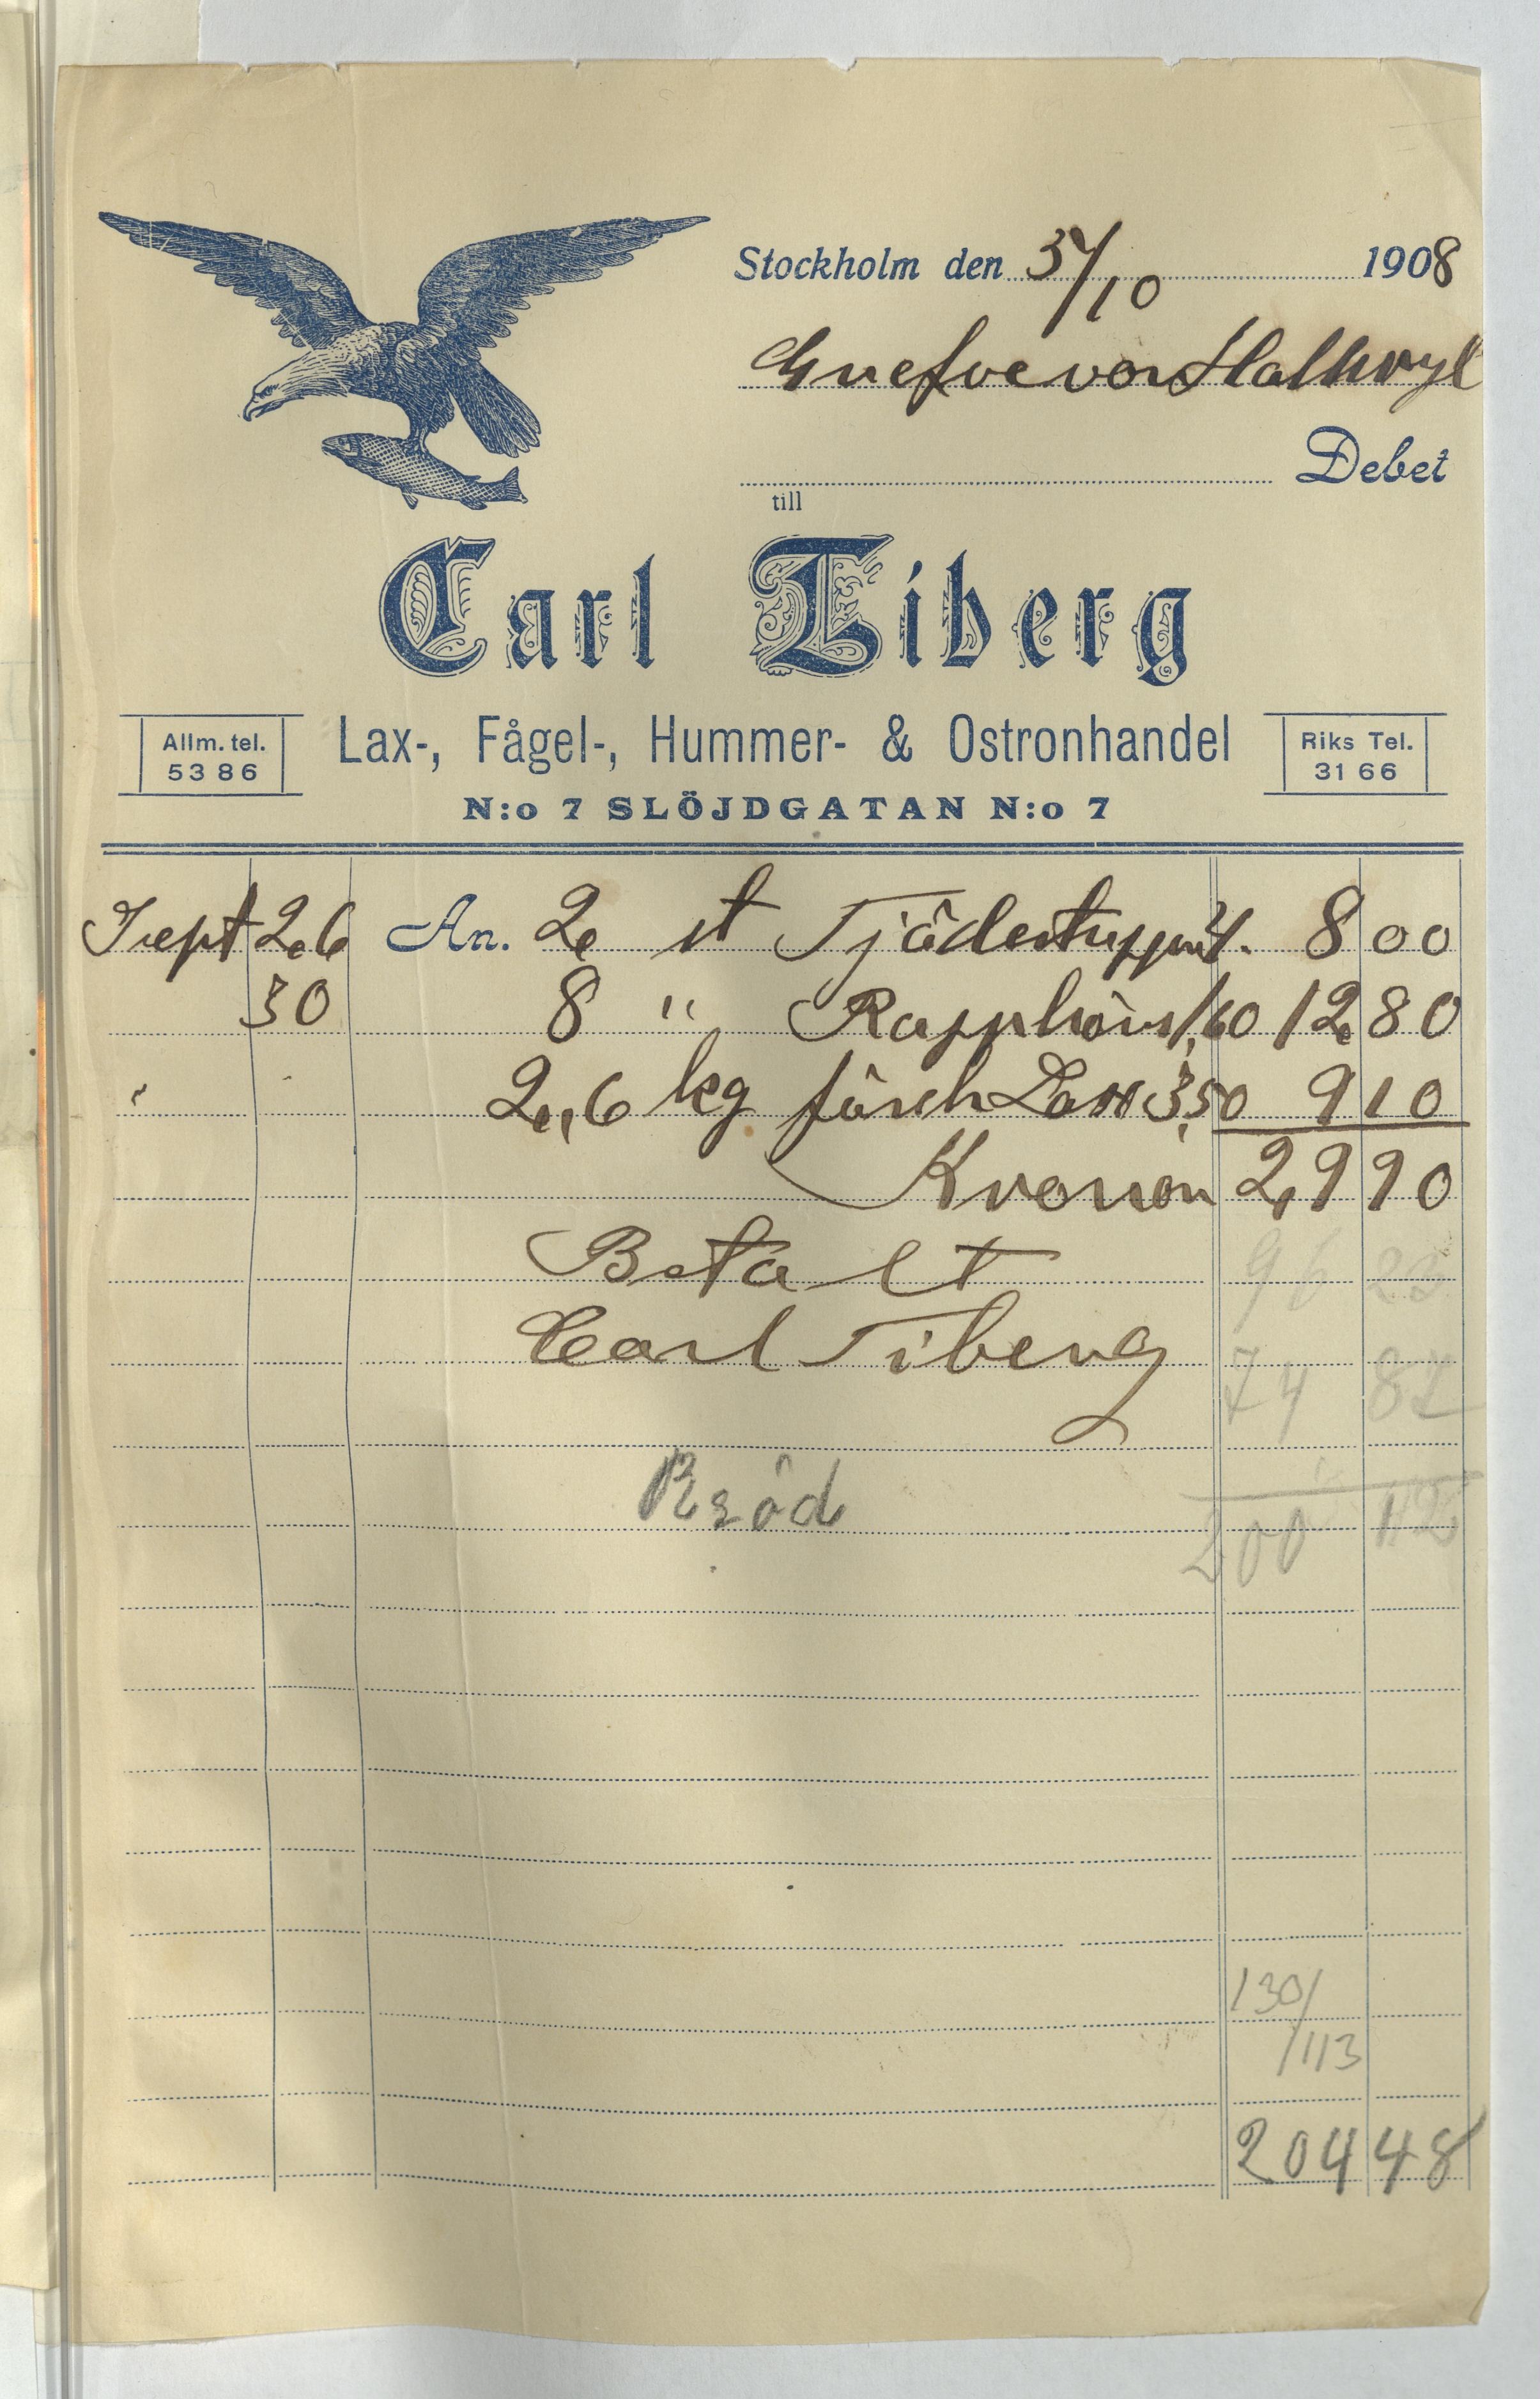 Stockholm den 31/10 1908
Grefve von Hallwyl
Debet
till
Carl Tiberg
Allm. tel. 5386
Lax-, Fågel-, Hummer- & Ostronhandel
Riks Tel. 3166
N:o 7 SLÖJDGATAN N:o 7
Sept 26 An. 2 st Tjäderstuppar 4. 8 00
30 8 " Rapphöns 1,60 12 80
" 2,6 kg färsk Lax 3,50 9 10
Kronor 29 90
96 23
Betalt
Carl Tiberg
74 87
Bröd
200 112
130/113
204 48